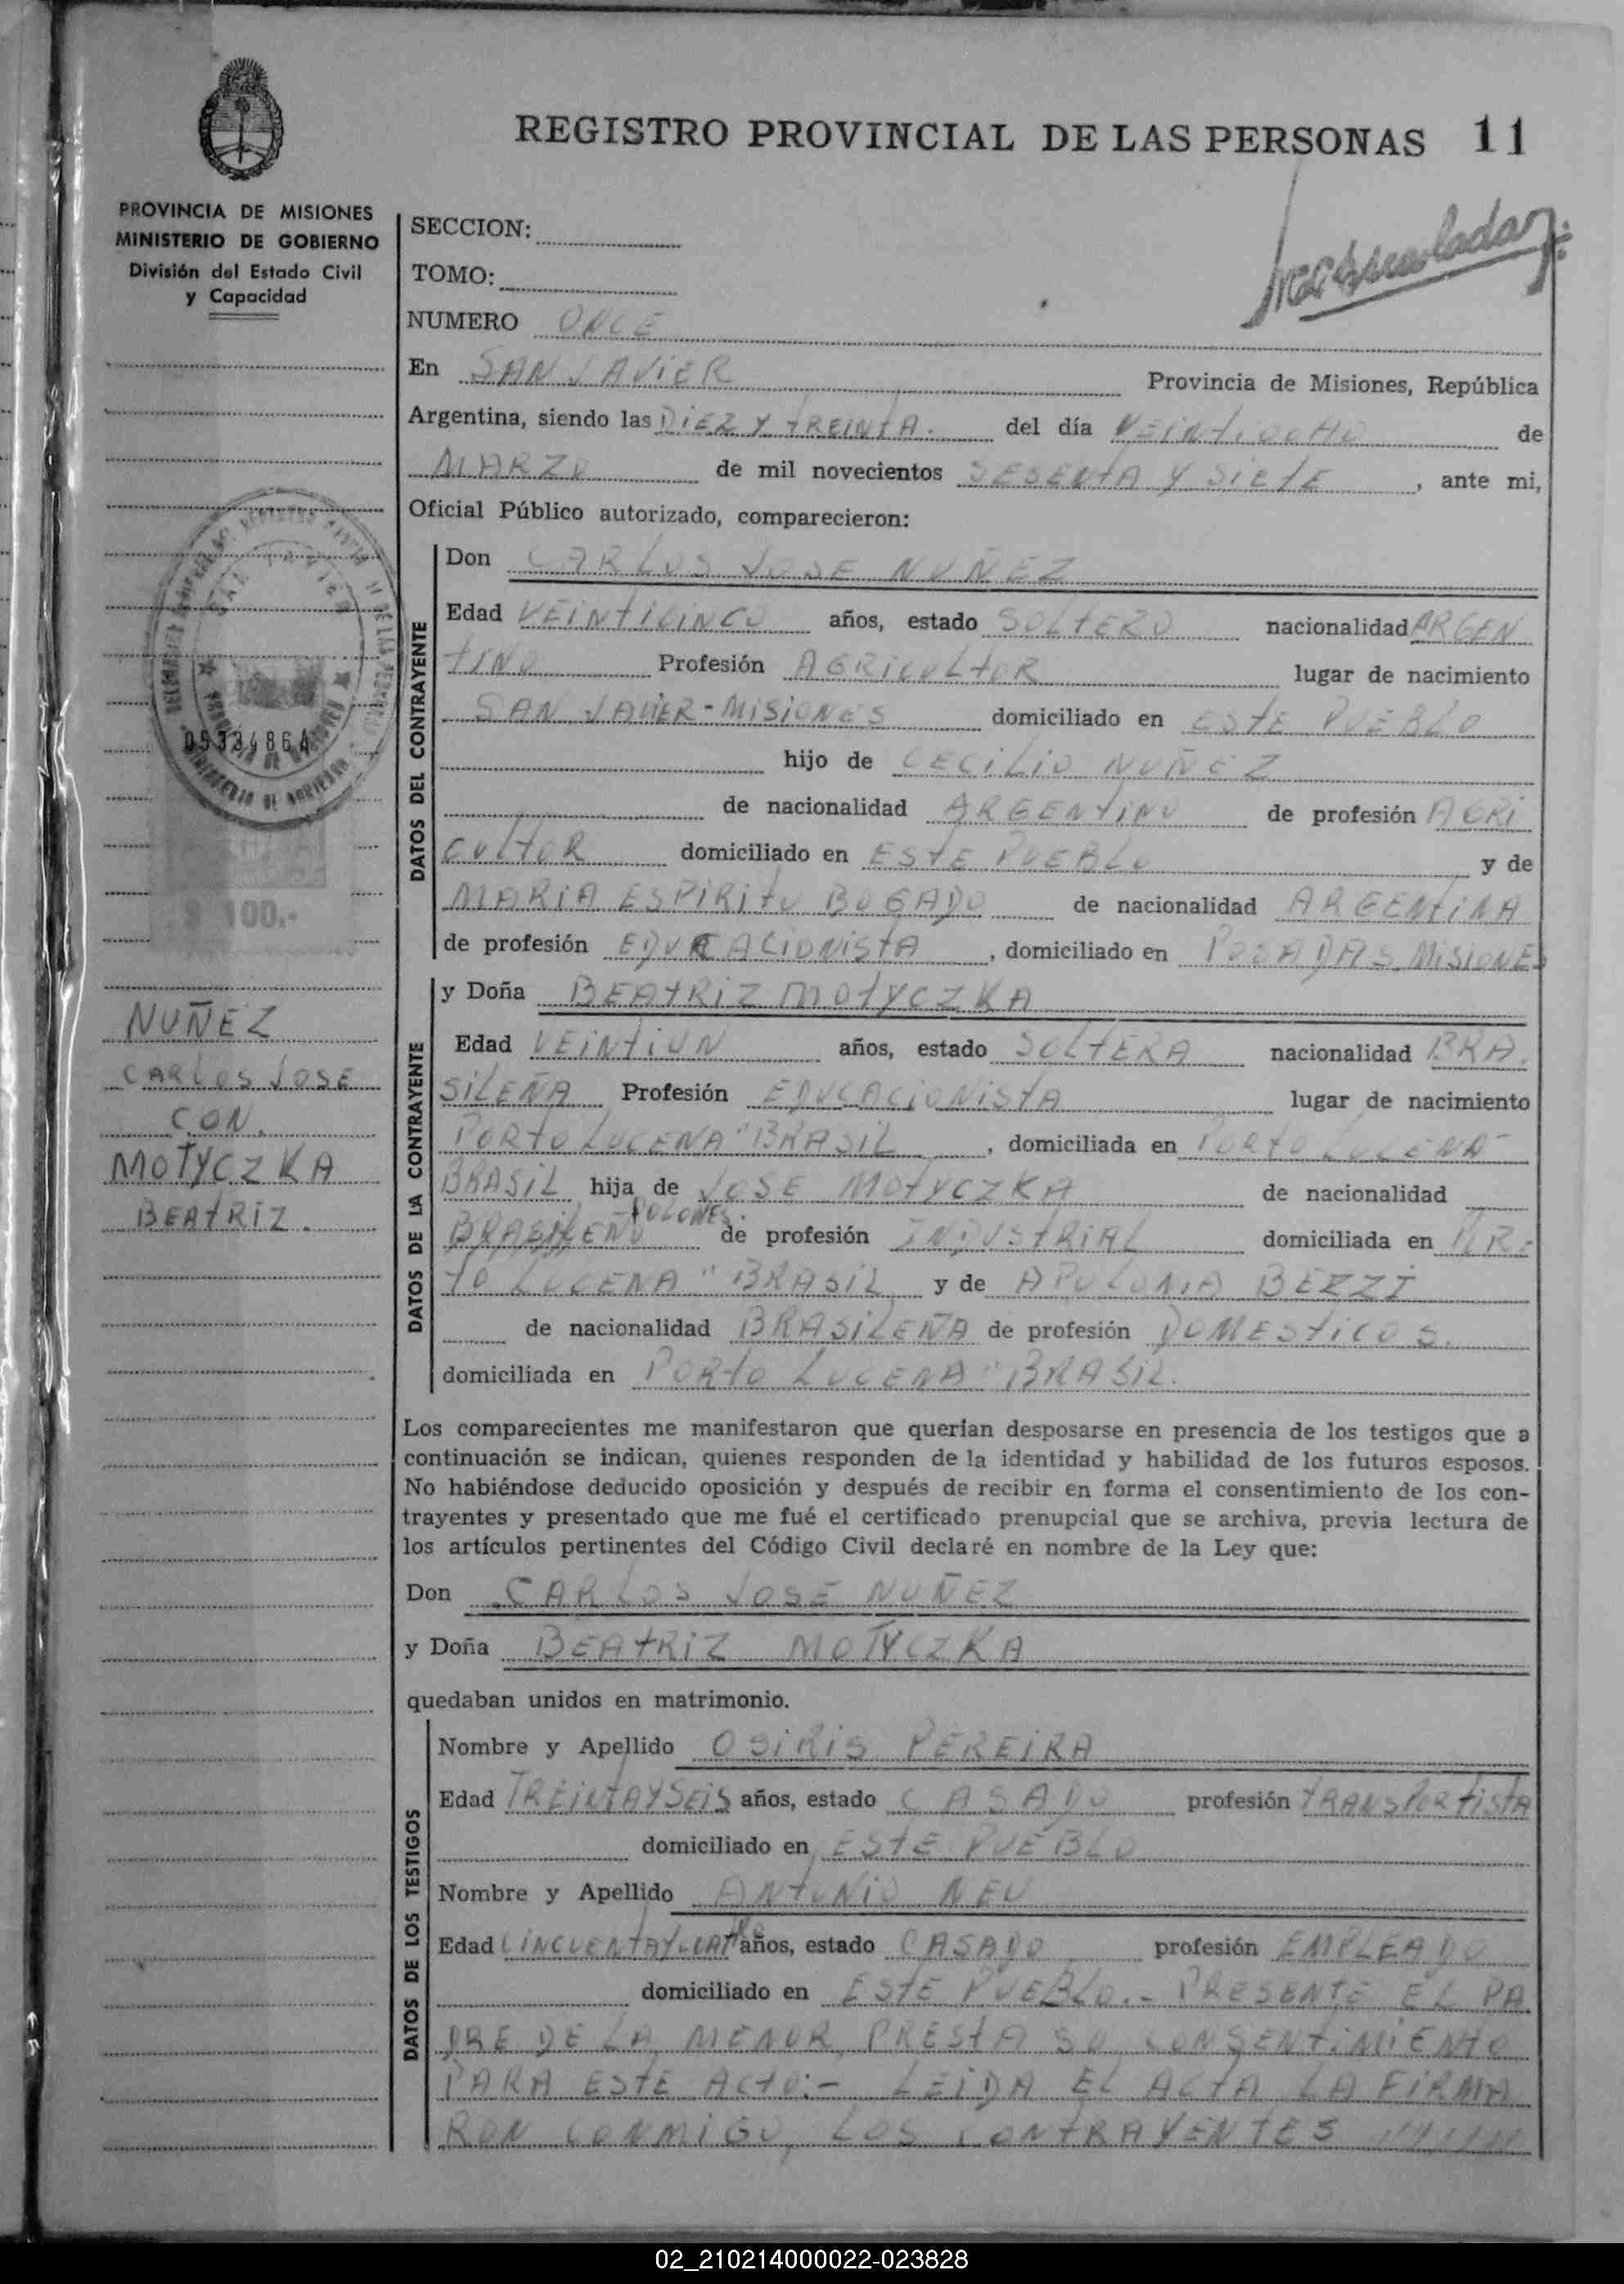 REGISTRO PROVINCIAL DE LAS PERSONAS 11
PROVINCIA DE MISIONES
MINISTERIO DE GOBIERNO
División del Estado Civil
y Capacidad
SECCION:
TOMO:
NUMERO ONCE
En SAN JAVIER Provincia de Misiones, República
Argentina, siendo las DIEZ Y TREINTA. del día VEINTIOCHO de
MARZO de mil novecientos SESENTA Y SIETE, ante mi,
Oficial Público autorizado, comparecieron:
DATOS DEL CONTRAYENTE
Don CARLOS JOSE NUÑEZ
Edad VEINTICINCO años, estado SOLTERO nacionalidad ARGEN
TINO Profesión AGRICULTOR lugar de nacimiento
SAN JAVIER - MISIONES domiciliado en ESTE PUEBLO
hijo de CECILIO NUÑEZ
de nacionalidad ARGENTINO de profesión AGRI
CULTOR domiciliado en ESTE PUEBLO y de
MARIA ESPIRITU BOGADO de nacionalidad ARGENTINA
de profesión EDUCACIONISTA, domiciliado en POSADAS, MISIONES
DATOS DE LA CONTRAYENTE
y Doña BEATRIZ MOTYCZKA
Edad VEINTIUN años, estado SOLTERA nacionalidad BRA.
SILEÑA Profesión EDUCACIONISTA lugar de nacimiento
PORTO LUCENA "BRASIL, domiciliada en PORTO LUCENA -
BRASIL hija de JOSE MOTYCZKA de nacionalidad
POLONES.
BRASILEÑO de profesión INDUSTRIAL domiciliada en POR-
TO LUCENA " BRASIL y de APOLONIA BEZZI
de nacionalidad BRASILEÑA de profesión DOMESTICOS.
domiciliada en PORTO LUCENA " BRASIL.
NUÑEZ
CARLOS JOSE
CON.
MOTYCZKA
BEATRIZ.
05334864
$ 100.-
Los comparecientes me manifestaron que querían desposarse en presencia de los testigos que a
continuación se indican, quienes responden de la identidad y habilidad de los futuros esposos.
No habiéndose deducido oposición y después de recibir en forma el consentimiento de los con-
trayentes y presentado que me fué el certificado prenupcial que se archiva, previa lectura de
los artículos pertinentes del Código Civil declaré en nombre de la Ley que:
Don CARLOS JOSE NUÑEZ
y Doña BEATRIZ MOTYCZKA
quedaban unidos en matrimonio.
DATOS DE LOS TESTIGOS
Nombre y Apellido OSIRIS PEREIRA
Edad TREINTAYSEIS años, estado CASADO profesión TRANSPORTISTA
domiciliado en ESTE PUEBLO
Nombre y Apellido ANTONIO NEU
Edad CINCUENTAYCUATRO años, estado CASADO profesión EMPLEADO
domiciliado en ESTE PUEBLO.- PRESENTE EL PA
DRE DE LA MENOR, PRESTA SU CONSENTIMIENTO
PARA ESTE ACTO.- LEIDA EL ACTA LA FIRMA
RON CONMIGO, LOS CONTRAYENTES
02_210214000022-023828